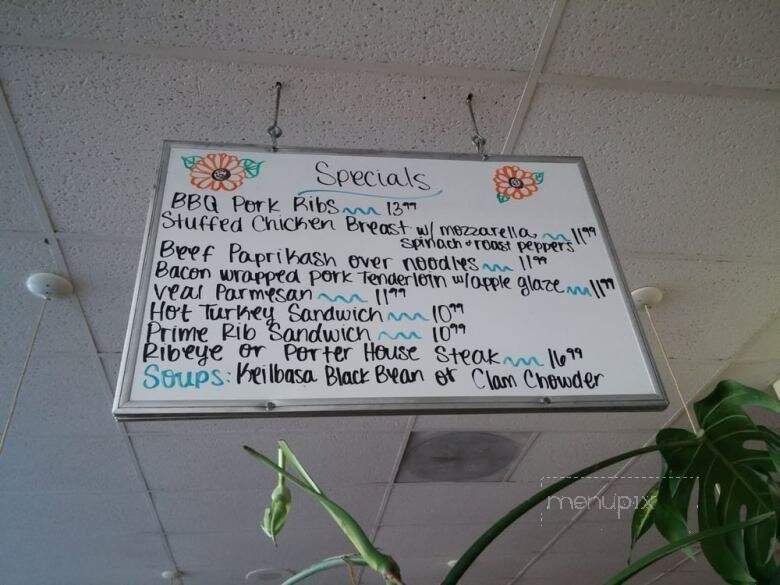 Specials
BBQ Pork Ribs 13.99
Stuffed Chicken Breast w/ mozzarella 11.99
spinach + roast peppers
Beef Paprikash over noodles 11.99
Bacon wrapped pork Tenderloin w/apple glaze 11.99
veal Parmesan 11.99
Hot Turkey Sandwich 10.99
Prime Rib Sandwich 10.99
Ribeye or Porter House Steak 16.99
Soups: Keilbasa Black Bean or Clam Chowder
menupix